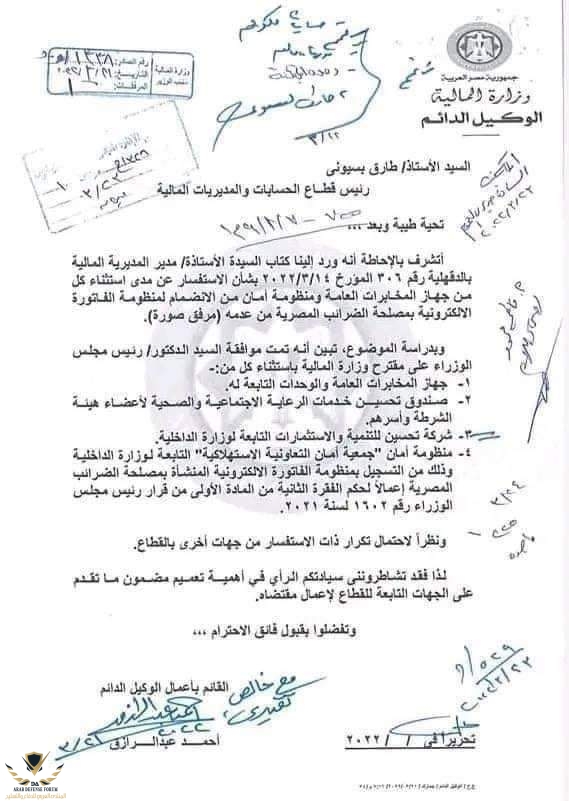 جمهورية مصر العربية
وزارة المالية
الوكيل الدائم
وزارة المالية
رقم الصادر: ١٣٣٨
التاريخ: ٢٠٢٢/٣/٢١
المرفقات: ١
السيد الأستاذ/ طارق بسيونى
رئيس قطاع الحسابات والمديريات المالية
تحية طيبة وبعد ،،،
أتشرف بالإحاطة أنه ورد إلينا كتاب السيدة الأستاذة/ مدير المديرية المالية
بالدقهلية رقم ٣٠٦ المؤرخ ٢٠٢٢/٣/١٤ بشأن الاستفسار عن مدى استثناء كل
من جهاز المخابرات العامة ومنظومة أمان من الانضمام لمنظومة الفاتورة
الالكترونية بمصلحة الضرائب المصرية من عدمه (مرفق صورة).
وبدراسة الموضوع، تبين أنه تمت موافقة السيد الدكتور/ رئيس مجلس
الوزراء على مقترح وزارة المالية باستثناء كل من:-
١- جهاز المخابرات العامة والوحدات التابعة له.
٢- صندوق تحسين خدمات الرعاية الاجتماعية والصحية لأعضاء هيئة
الشرطة وأسرهم.
٣- شركة تحسين للتنمية والاستثمارات التابعة لوزارة الداخلية.
٤- منظومة أمان "جمعية أمان التعاونية الاستهلاكية" التابعة لوزارة الداخلية
وذلك من التسجيل بمنظومة الفاتورة الالكترونية المنشأة بمصلحة الضرائب
المصرية إعمالاً لحكم الفقرة الثانية من المادة الأولى من قرار رئيس مجلس
الوزراء رقم ١٦٠٢ لسنة ٢٠٢١.
ونظراً لاحتمال تكرار ذات الاستفسار من جهات أخرى بالقطاع.
لذا فقد تشاطروننى سيادتكم الرأي في أهمية تعميم مضمون ما تقدم
على الجهات التابعة للقطاع لإعمال مقتضاه.
وتفضلوا بقبول فائق الاحترام ،،،
مع خالص تقديرى
القائم بأعمال الوكيل الدائم
أحمد عبدالرازق
تحريراً فى / / ٢٠٢٢
ARAB DEFENSE FORUM